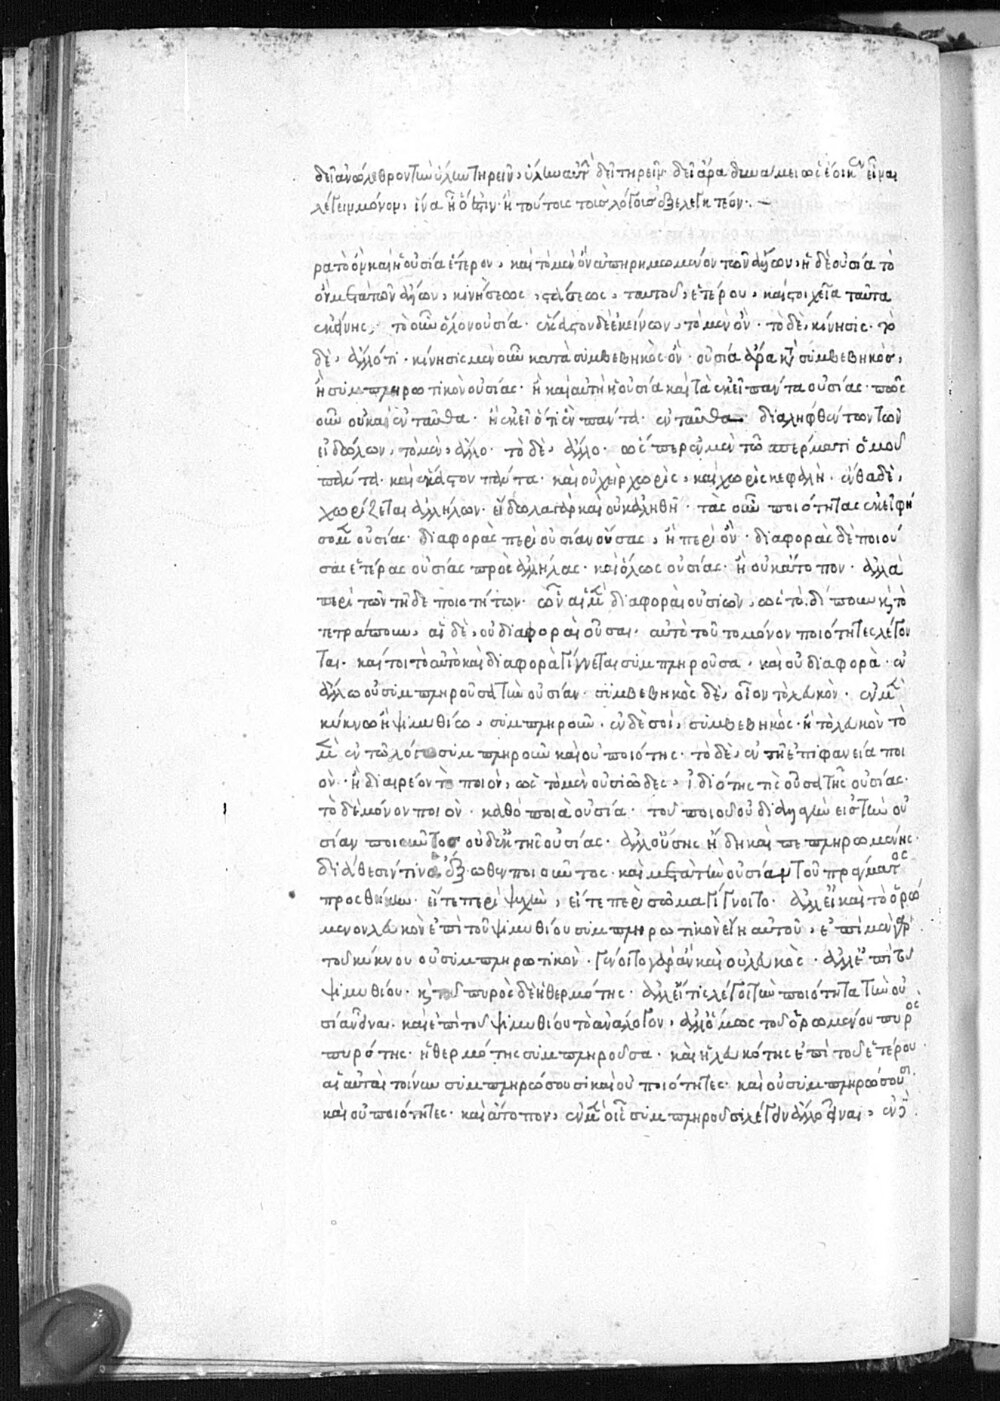 δεῖ ἀνώλεθρον τὴν ὕλην τηρεῖν, ὕλην αὐτὴν δεῖ τηρεῖν· δεῖ ἄρα δυνάμει ὡς ἔοικεν εἶναι
λέγειν μόνον, ἵνα ᾖ ὅ ἐστιν· ἢ τούτοις τοῖς λόγοις ἐξελεγκτέον·
ρα τὸ ὂν καὶ ἡ οὐσία ἕτερον, καὶ τὸ μὲν ὂν ἀπηρημωμένον τῶν ἄλλων, ἡ δὲ οὐσία τὸ
ὂν μετὰ τῶν ἄλλων, κινήσεως, στάσεως, ταυτοῦ, ἑτέρου, καὶ στοιχεῖα ταῦτα
ἐκείνης, τὸ οὖν ὅλον οὐσία· ἕκαστον δὲ ἐκείνων, τὸ μὲν ὄν· τὸ δὲ, κίνησις· τὸ
δὲ, ἄλλό τι· κίνησις μὲν οὖν κατὰ συμβεβηκὸς ὄν· οὐσία ἄρα κατὰ συμβεβηκὸς,
ἢ συμπληρωτικὸν οὐσίας· ἢ καὶ αὐτὴ ἡ οὐσία καὶ τὰ ἐκεῖ πάντα οὐσίας· πῶς
οὖν οὐ καὶ ἐνταῦθα· ἢ ἐκεῖ ὅτι ἓν πάντα· ἐνταῦθα διαληφθέντων τῶν
εἰδώλων, τὸ μὲν, ἄλλο· τὸ δὲ, ἄλλο· ὥσπερ ἐν μὲν τῷ σπέρματι ὁμοῦ
πάντα· καὶ ἕκαστον πάντα· καὶ οὐ χεὶρ χωρὶς, καὶ χωρὶς κεφαλή· ἔνθα δὲ,
χωρίζεται ἀλλήλων· εἴδωλα γὰρ καὶ οὐκ ἀληθῆ· τὰς οὖν ποιότητας ἐκεῖ φή
σομεν οὐσίας· διαφορὰς περὶ οὐσίαν οὔσας, ἢ περὶ ὄν· διαφορὰς δὲ ποιού
σας ἑτέρας οὐσίας πρὸς ἀλλήλας· καὶ ὅλως οὐσίας· ἢ οὐκ ἄτοπον· ἀλλὰ
περὶ τῶν τῇδε ποιοτήτων· ὧν αἱ μὲν διαφοραὶ οὐσιῶν, ὡς τὸ δίπουν καὶ τὸ
τετράπουν, αἱ δὲ, οὐ διαφοραὶ οὖσαι· αὐτὸ τοῦτο μόνον ποιότητες λέγον
ται· καίτοι τὸ αὐτὸ καὶ διαφορὰ γίγνεται συμπληροῦσα, καὶ οὐ διαφορὰ· ἐν
ἄλλῳ οὐ συμπληροῦσα τὴν οὐσίαν· συμβεβηκὸς δὲ, οἷον τὸ λευκόν· ἐν μὲν
κύκνῳ ἢ ψιμυθίῳ, συμπληροῦν· ἐν δὲ σοὶ, συμβεβηκός· ἢ τὸ λευκὸν τὸ
μὲν ἐν τῷ λόγῳ συμπληροῦν καὶ οὐ ποιότης· τὸ δὲ, ἐν τῇ ἐπιφανείᾳ ποι
όν· ἢ διαιρετέον τὸ ποιὸν, ὡς τὸ μὲν οὐσιῶδες, ἰδιότης τὶς οὖσα τῆς οὐσίας·
τὸ δὲ μόνον ποιὸν· καθὸ ποιὰ οὐσία· τοῦ ποιοῦ οὐ διαλλαγὴν εἰς τὴν οὐ
σίαν ποιοῦντος οὐδ' ἐκ τῆς οὐσίας· ἀλλ' οὔσης ἤδη καὶ πεπληρωμένης·
διάθεσίν τινα ἔξωθεν ποιοῦντος· καὶ μετὰ τὴν οὐσίαν τοῦ πράγματος
προσθήκην· εἴτε περὶ ψυχὴν, εἴτε περὶ σῶμα γίγνοιτο· ἀλλ' εἰ καὶ τὸ ὁρώ
μενον λευκὸν ἐπὶ τοῦ ψιμυθίου συμπληρωτικὸν εἴη αὐτοῦ, ἐπὶ μὲν γὰρ
τοῦ κύκνου οὐ συμπληρωτικὸν· γένοιτο γὰρ ἂν καὶ οὐ λευκὸς· ἀλλ' ἐπὶ τοῦ
ψιμυθίου· καὶ τοῦ πυρὸς δὲ ἡ θερμότης· ἀλλ' εἴ τις λέγοι τὴν ποιότητα τὴν οὐ
σίαν εἶναι· καὶ ἐπὶ τοῦ ψιμυθίου τὸ ἀνάλογον, ἀλλ' ὅμως τοῦ ὁρωμένου πυρὸς
πυρότης· ἡ θερμότης συμπληροῦσα· καὶ ἡ λευκότης ἐπὶ τοῦ ἑτέρου·
αἱ αὐταὶ τοίνυν συμπληρώσουσι καὶ οὐ ποιότητες· καὶ οὐ συμπληρώσουσι
καὶ οὐ ποιότητες· καὶ ἄτοπον, ἐν μὲν οἷς συμπληροῦσι λέγειν ἄλλο εἶναι, ἐν δὲ